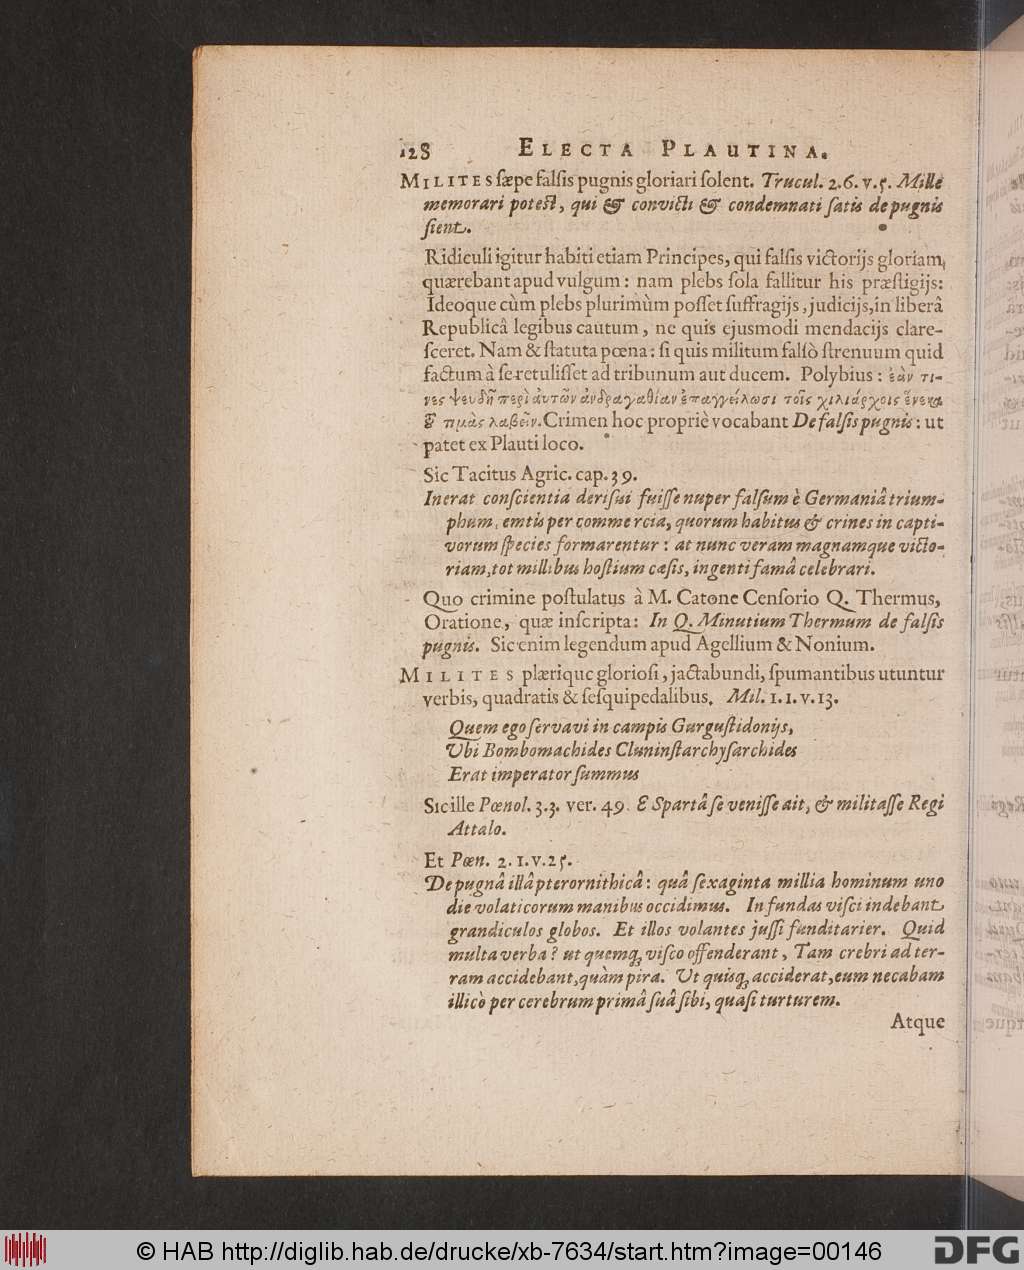 128 ELECTA PLAUTINA.
MILITES sæpe falsis pugnis gloriari solent. Trucul. 2.6.v.5. Mille
memorari potest, qui & convicti & condemnati satis de pugnis
sient.
Ridiculi igitur habiti etiam Principes, qui falsis victorijs gloriam,
quærebant apud vulgum: nam plebs sola fallitur his præstigijs:
Ideoque cùm plebs plurimùm posset suffragijs, judicijs, in liberâ
Republicâ legibus cautum, ne quis ejusmodi mendacijs clare-
sceret. Nam & statuta pœna: si quis militum falsò strenuum quid
factum à se retulisset ad tribunum aut ducem. Polybius: ἐὰν τι-
νες ψευδῆ περὶ ἀυτῶν ἀνδραγαθίαν ἐπαγγείλωσι τοῖς χιλιάρχοις ἕνεκα
& τιμὰς λαβεῖν. Crimen hoc propriè vocabant De falsis pugnis: ut
patet ex Plauti loco.
Sic Tacitus Agric. cap. 39.
Inerat conscientia derisui fuisse nuper falsum è Germaniâ trium-
phum, emtis per commercia, quorum habitus & crines in capti-
vorum species formarentur: at nunc veram magnamque victo-
riam, tot millibus hostium cæsis, ingenti famâ celebrari.
Quo crimine postulatus à M. Catone Censorio Q. Thermus,
Oratione, quæ inscripta: In Q. Minutium Thermum de falsis
pugnis. Sic enim legendum apud Agellium & Nonium.
MILITES plærique gloriosi, jactabundi, spumantibus utuntur
verbis, quadratis & sesquipedalibus. Mil. 1.1.v.13.
Quem ego servavi in campis Gurgustidonijs,
Ubi Bombomachides Cluninstarchysarchides
Erat imperator summus
Sicille Pœnol. 3.3. ver. 49. E Spartâ se venisse ait, & militasse Regi
Attalo.
Et Pœn. 2.1.v.25.
De pugnâ illâ pterornithicâ: quâ sexaginta millia hominum uno
die volaticorum manibus occidimus. In fundas visci indebant
grandiculos globos. Et illos volantes jussi funditarier. Quid
multa verba? ut quemq; visco offenderant, Tam crebri ad ter-
ram accidebant, quàm pira. Ut quisq; acciderat, eum necabam
illicò per cerebrum primâ suâ sibi, quasi turturem.
Atque
© HAB http://diglib.hab.de/drucke/xb-7634/start.htm?image=00146 DFG